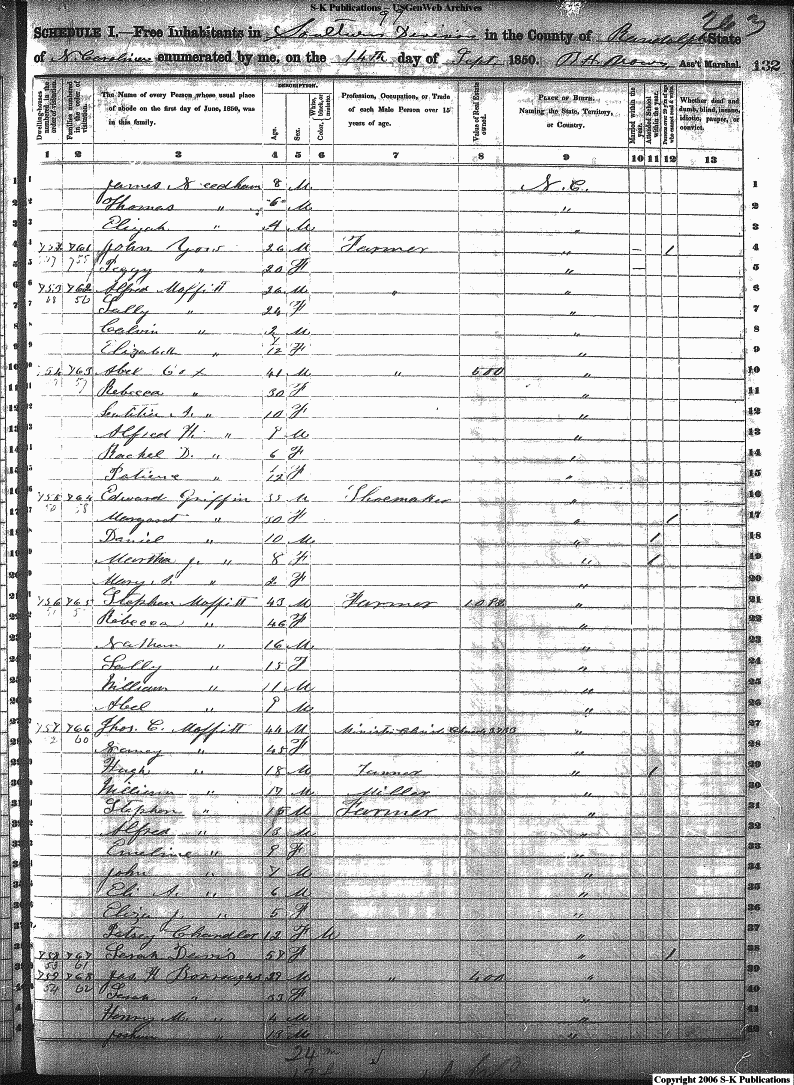 S-K Publications – USGenWeb Archives
97
263
SCHEDULE I.—Free Inhabitants in Southern Division in the County of Randolph State
of N Carolina enumerated by me, on the 14th day of Sept 1850. B H Brown Ass't Marshal. 132
Dwelling-houses numbered in the order of visitation.
Families numbered in the order of visitation.
The Name of every Person whose usual place of abode on the first day of June, 1850, was in this family.
DESCRIPTION.
Age.
Sex.
Color
Profession, Occupation, or Trade of each Male Person over 15 years of age.
Value of Real Estate owned.
PLACE OF BIRTH. Naming the State, Territory, or Country.
Married within the year.
Attended School within the year.
Whether deaf and dumb, blind, insane, idiotic, pauper, or convict.
1 2 3 4 5 6 7 8 9 10 11 12 13
1 James Needham 8 M N. C. 1
2 Thomas " 6 M " 2
3 Elijah " 4 M " 3
4 752 761 John Yow 26 M Farmer " – 1 4
5 Peggy " 20 F " – 5
6 753 762 Alfred Moffitt 26 M " " 6
7 Sally " 24 F " 7
8 Calvin " 2 M " 8
9 Elizabeth " 7/12 F " 9
10 754 763 Abel Cox 41 M " 500 " 10
11 Rebecca " 30 F " 11
12 " 10 F " 12
13 Alfred H. " 9 M " 13
14 Rachel D. " 6 F " 14
15 " 1/12 F " 15
16 755 764 Edward Griffin 55 M Shoemaker " 16
17 Margaret " 50 F " 1 17
18 Daniel " 10 M " 1 18
19 Martha J. " 8 F " 1 19
20 Mary " 2 F " 20
21 756 765 Stephen Moffitt 43 M Farmer " 21
22 Rebecca " 46 F " 22
23 Nathan " 16 M " 23
24 Sally " 15 F " 24
25 William " 11 M " 25
26 Abel " 9 M " 26
27 757 766 Thos. C. Moffitt 44 M " 27
28 Nancy " 45 F " 28
29 Hugh " 18 M Tanner " 1 29
30 William " 17 M Miller " 30
31 Stephen " 15 M Farmer " 31
32 Alfred " 13 M " 32
33 Emeline " 9 F " 33
34 John " 7 M " 34
35 Eli A. " 6 M " 35
36 Eliza J. " 5 F " 36
37 Patsey Chandler 12 F M " 37
38 758 767 Sarah Davis 57 F " 1 38
39 759 768 Jas H Borroughs 39 M " 400 " 39
40 Sarah " 33 F " 40
41 Henry M. " 4 M " 41
42 Joshua " 13 M " 42
24 m
Copyright 2006 S-K Publications